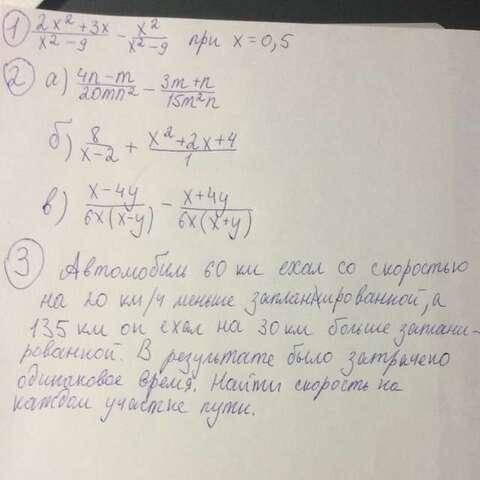 1) (2x² + 3x)/(x² - 9) - x²/(x² - 9) при x = 0,5
2) а) (4n - m)/(20mn²) - (3m + n)/(15m²n)
б) 8/(x - 2) + (x² + 2x + 4)/1
в) (x - 4y)/(6x(x - y)) - (x + 4y)/(6x(x + y))
3) Автомобиль 60 км ехал со скоростью
на 20 км/ч меньше запланированной, а
135 км он ехал на 30 км больше заплани-
рованной. В результате было затрачено
одинаковое время. Найти скорость на
каждом участке пути.